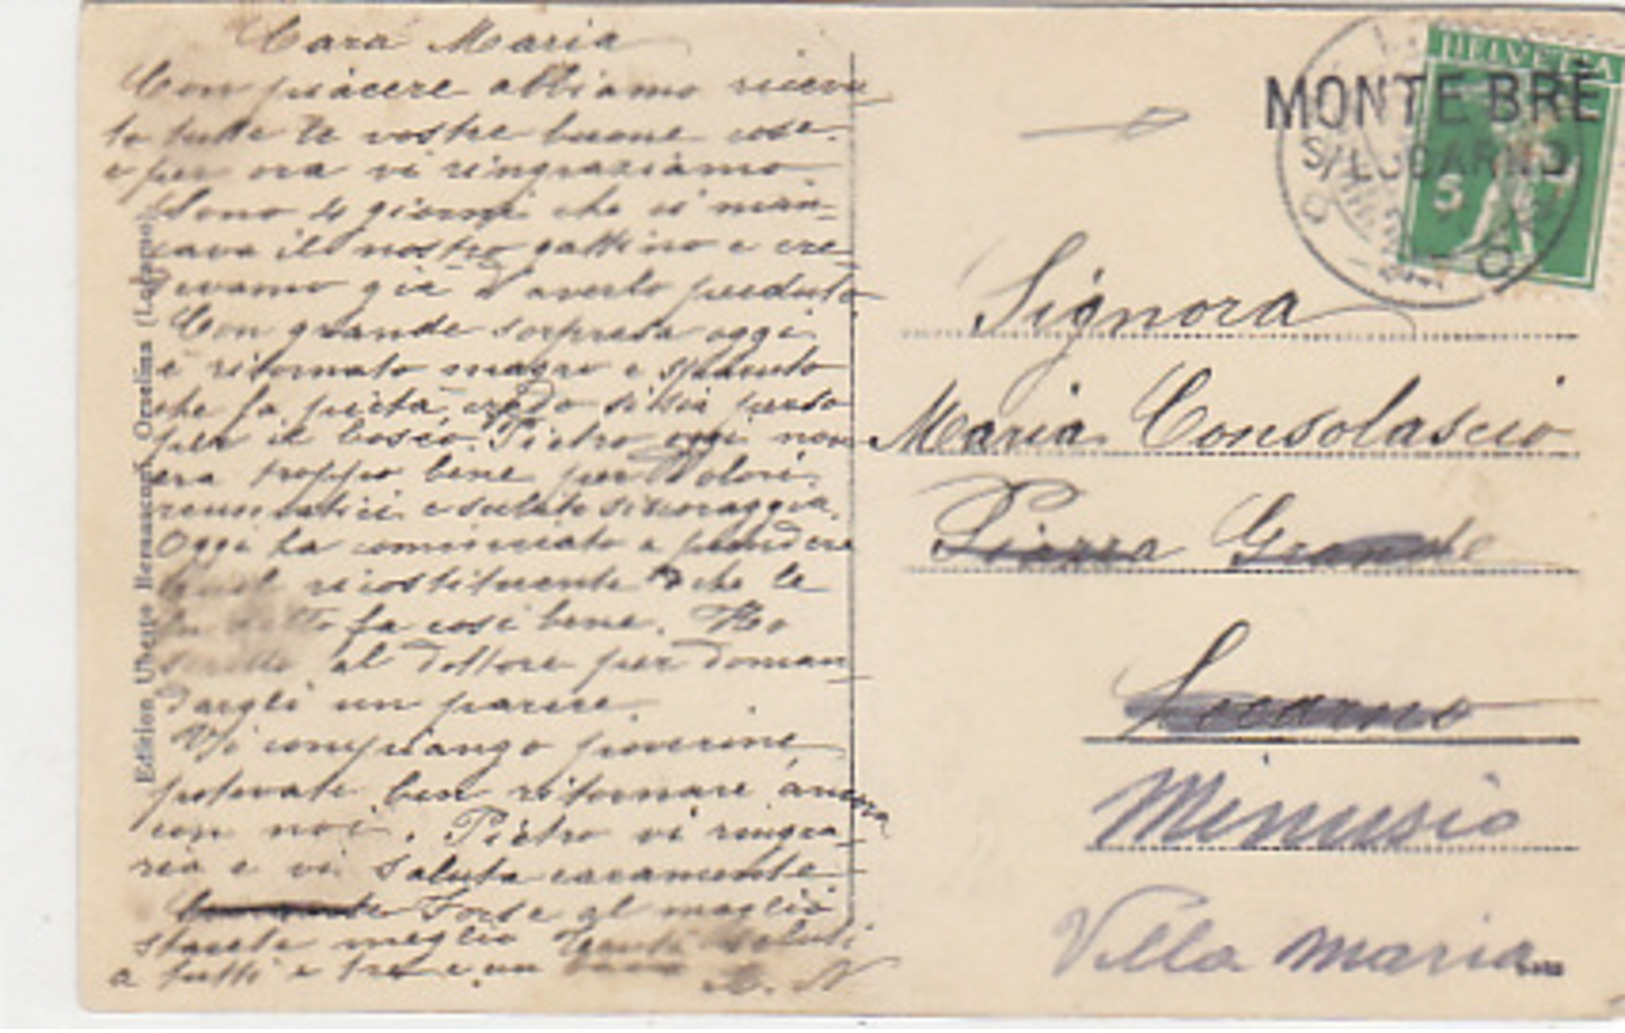 Cara Maria
Con piacere abbiamo ricevu
to tutte le vostre buone cose.
e per ora vi ringraziamo
Sono giorni che ci man-
cava il nostro gattino e cre-
devamo già d'averlo perduto
Con grande sorpresa oggi
è ritornato magro e sparuto
che fa pietà, credo si sia perso
per il bosco. Pietro oggi non
era troppo bene per dolori
reumatici e subito si scoraggia.
Oggi ha cominciato a prendere
quel ricostituente che le
fa così bene. Ho
scritto al dottore per doman
dargli un parere.
Vi compiango poverine
potevate ben ritornare ancora
con noi. Pietro vi ringra-
zia e vi saluta caramente
Forse al
starete meglio Tanti saluti
a tutti e tre e un
Edition Uberto Orselina (Locarno)
HELVETIA
5
MONTE BRÈ
S/LOCARNO
Signora
Maria Consolascio
Piazza Grande
Locarno
Minusio
Villa Maria